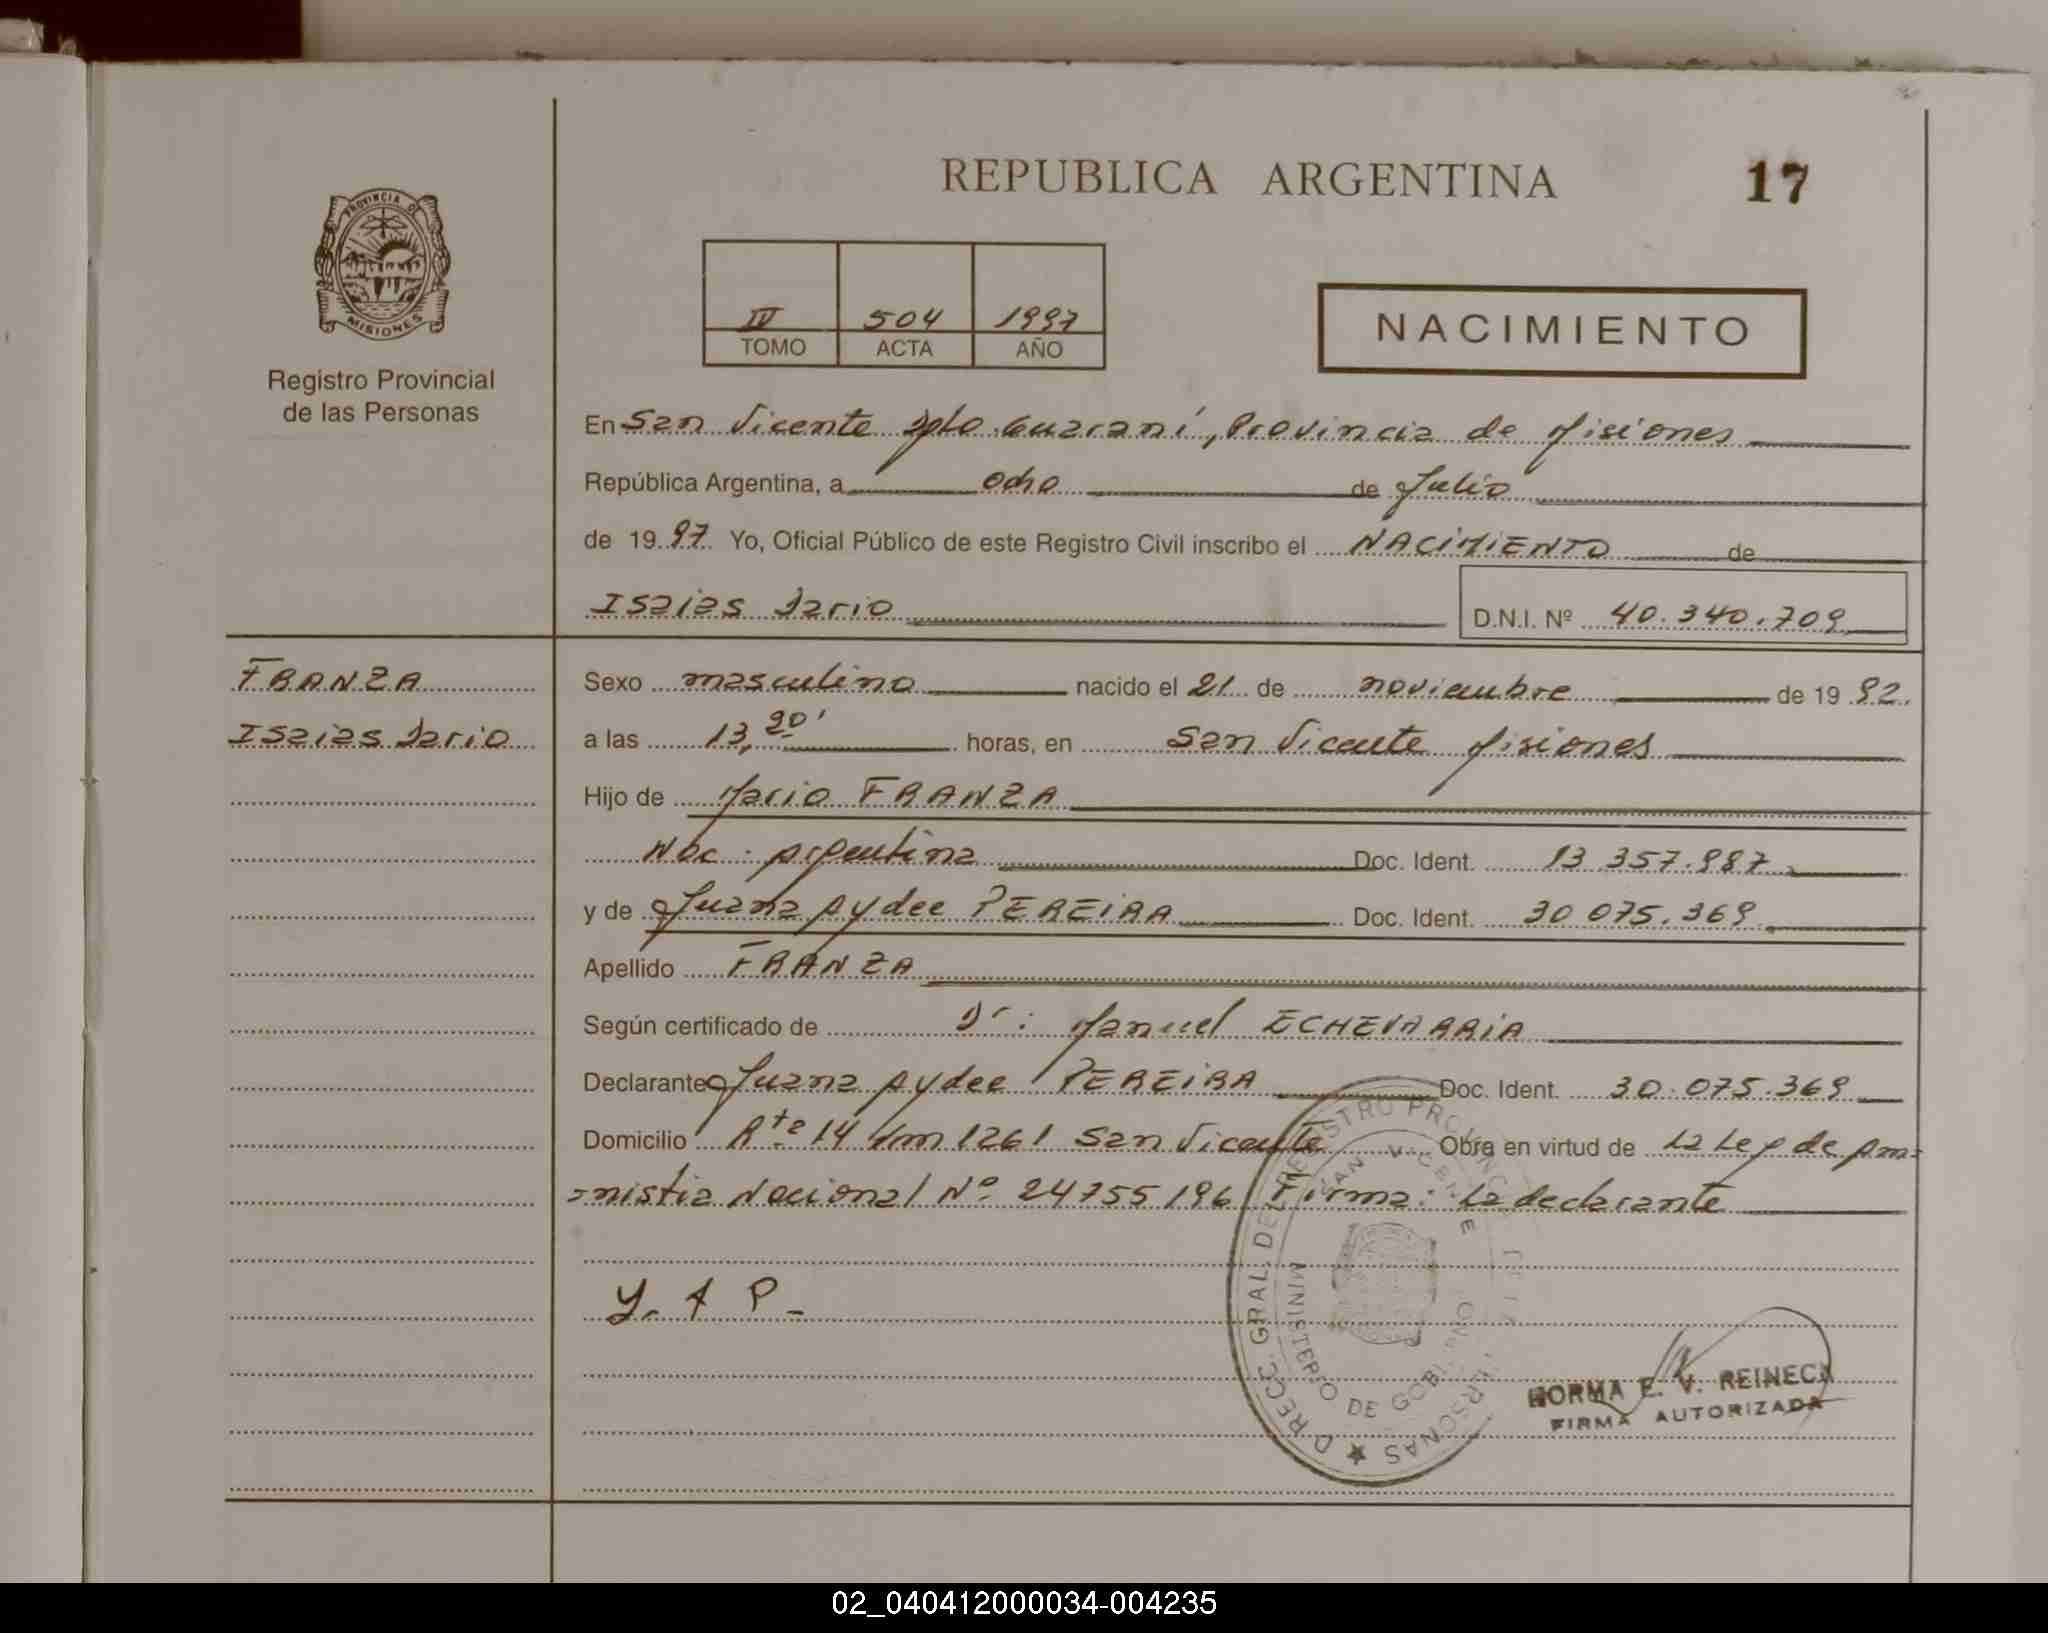 REPUBLICA ARGENTINA
17
PROVINCIA DE
MISIONES
Registro Provincial
de las Personas
IV 504 1997
TOMO ACTA AÑO
NACIMIENTO
En San Vicente Dpto. Guaraní, Provincia de Misiones
República Argentina, a ocho de Julio
de 1997 Yo, Oficial Público de este Registro Civil inscribo el NACIMIENTO de
Isaias Dario
D.N.I. Nº 40.340.709
FRANZA
Isaias Dario
Sexo masculino nacido el 21 de noviembre de 1992.
a las 13,20' horas, en San Vicente Misiones
Hijo de Mario FRANZA
Nac. Argentina Doc. Ident. 13 357.987
y de Juana Aydee PEREIRA Doc. Ident. 30 075.369
Apellido FRANZA
Según certificado de Dr: Manuel ECHEVARRIA
Declarante Juana Aydee PEREIRA Doc. Ident. 30.075.369
Domicilio Rta 14 km 1261 San Vicente Obra en virtud de La Ley de Am=
=nistia Nacional Nº 24755/96 Firma: La declarante
Y. A P -
NORMA E. V. REINECK
FIRMA AUTORIZADA
02_040412000034-004235